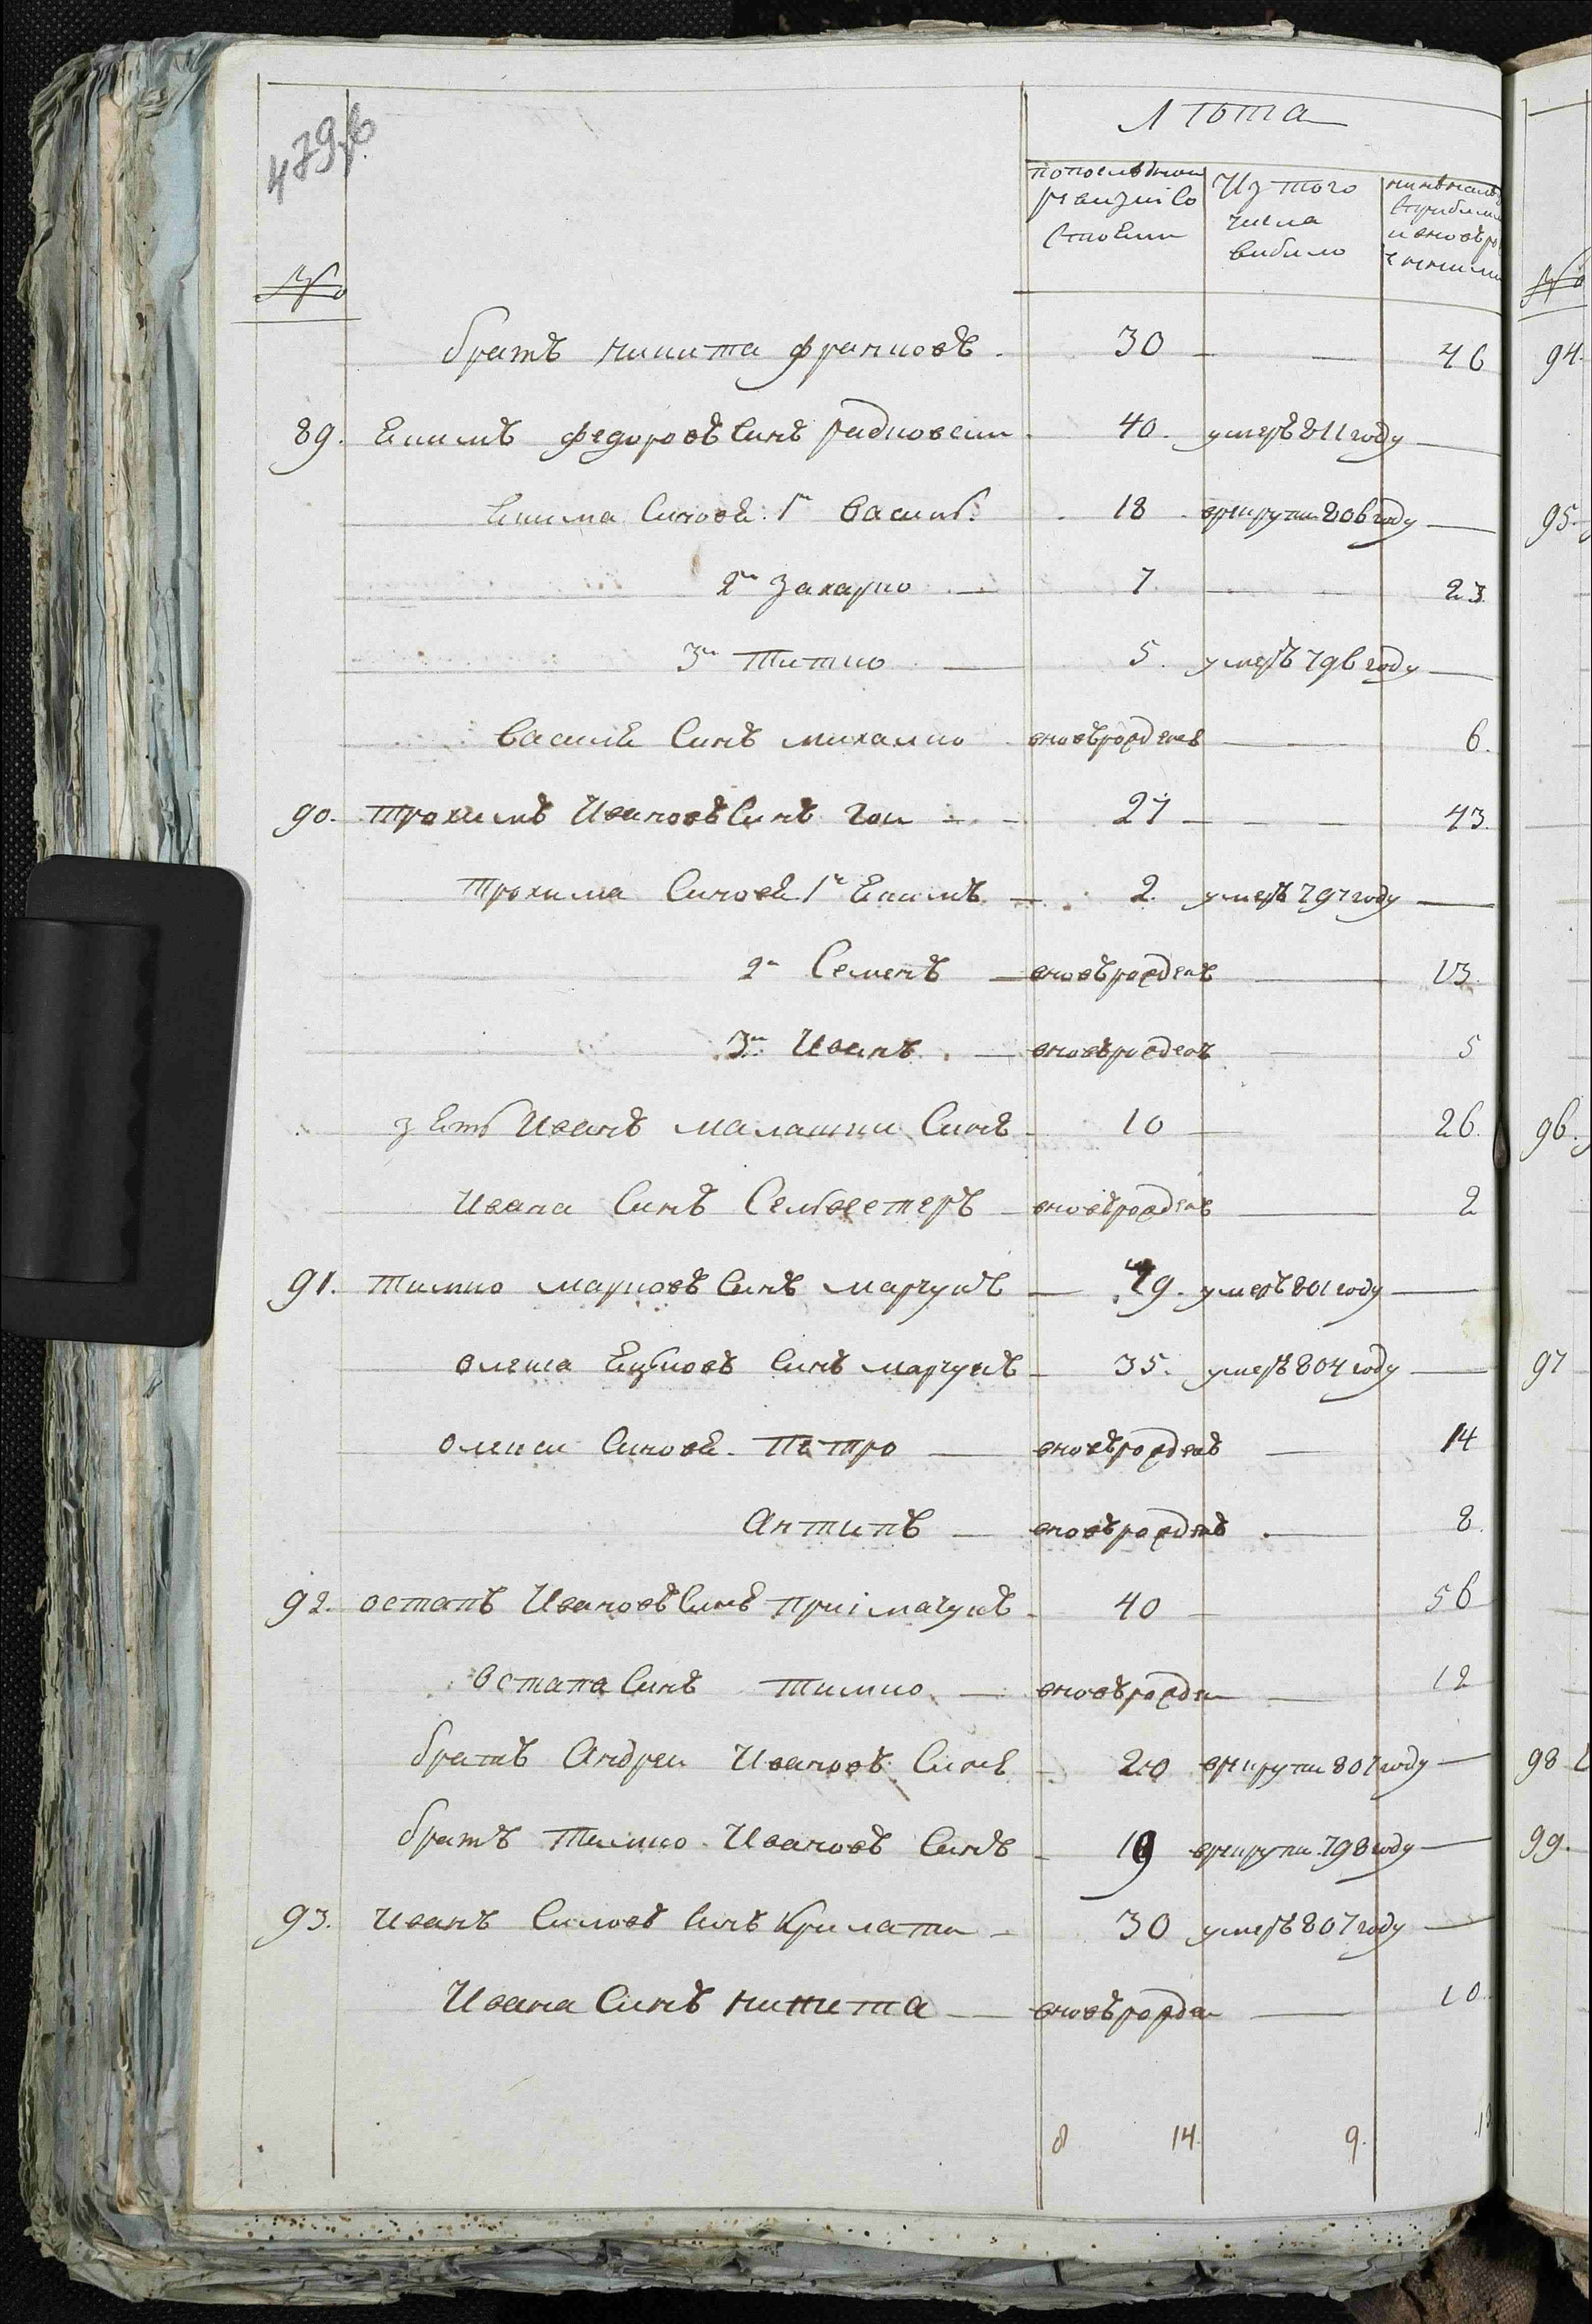 479 об
Лѣта
По последнеи ревизіи Состояли
Из того числа вибило
№
братъ Никита Франковъ 30 — — 46
89. Екимъ Федоровъ Синъ Радковски 40. умеръ 811 году —
Екима Синовя: 1й Василь. 18 врикрути 806 году —
2й Захарко — 7 — 23.
3й Титко — 5. умеръ 796 году —
Василя Синъ Михалко вновърожденъ — 6.
90. Трохимъ Ивановъ Синъ Гои 27 — — 43.
Трохима Синовя 1й Екимъ — 2. умеръ 797 году —
2й Семенъ — вновърожденъ — 13.
3й Иванъ. — вновърожденъ — 5
зять Иванъ Малашки Синъ 10 — 26.
Ивана Синъ Селвестеръ вновърожденъ — 2
91. Тимко Марковъ Синъ Марчукъ — 49. умеръ 801 году —
Олекса Яцковъ Синъ Марчукъ 35. умеръ 804 году —
Олекси Синовя Петро — вновърожденъ — 14
Антипъ — вновърожденъ — 8.
92. Остапъ Ивановъ Синъ Приімачукъ 40 — 56
Остапа Синъ Тимко — вновърожде — 12
братъ Андреи Ивановъ Синъ 20 врикрути 807 году —
братъ Тимко Ивановъ Синъ 19 врикрути 798 году —
93. Иванъ Симовъ Синъ Крилати 30 умеръ 807 году —
Ивана Синъ Никита — вновърожде — 10.
8 14. 9.
№
94.
95.
96.
97
98
99.